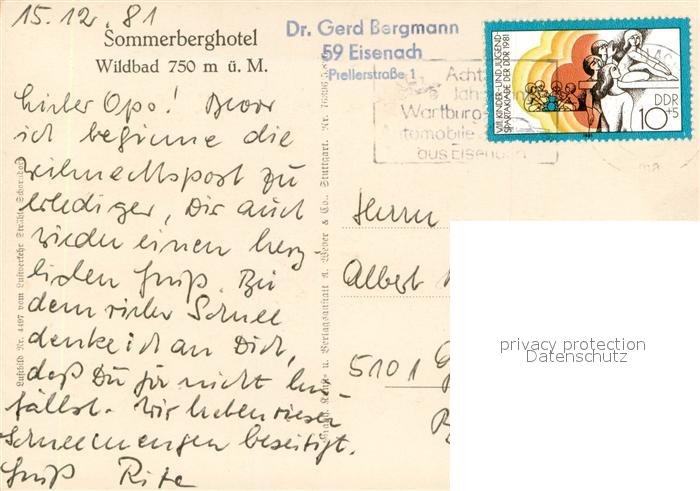 15.12.81
Sommerberghotel
Wildbad 750 m ü. M.
Dr. Gerd Bergmann
59 Eisenach
Prellerstraße 1
Acht
Jah
Wartburg-
tomobile
aus Eisenach
VIII. KINDER- UND JUGEND-
SPARTAKIADE DER DDR 1981
DDR
10+5
Lieber Opa! Bevor
ich beginne die
Weihnachtspost zu
erledigen, Dir auch
wieder einen herz
lichen Gruß. Bei
dem vielen Schnee
denke ich an Dich,
daß Du ja nicht hin-
fällst. Wir haben
Schneemengen beseitigt.
Gruß Rita
Luftbild Nr. 4497 vom Luftverkehr Strähle, Schorndorf
u. Verlagsanstalt A. Weber & Co., Stuttgart.
Herrn
Albert
5101
privacy protection
Datenschutz